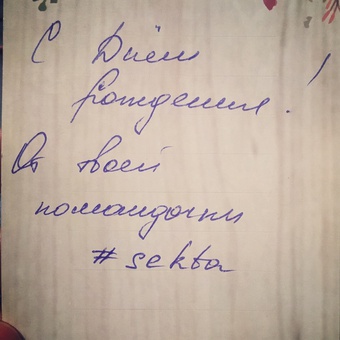 С Днём
рождения!
От твоей
командочки
#sekta